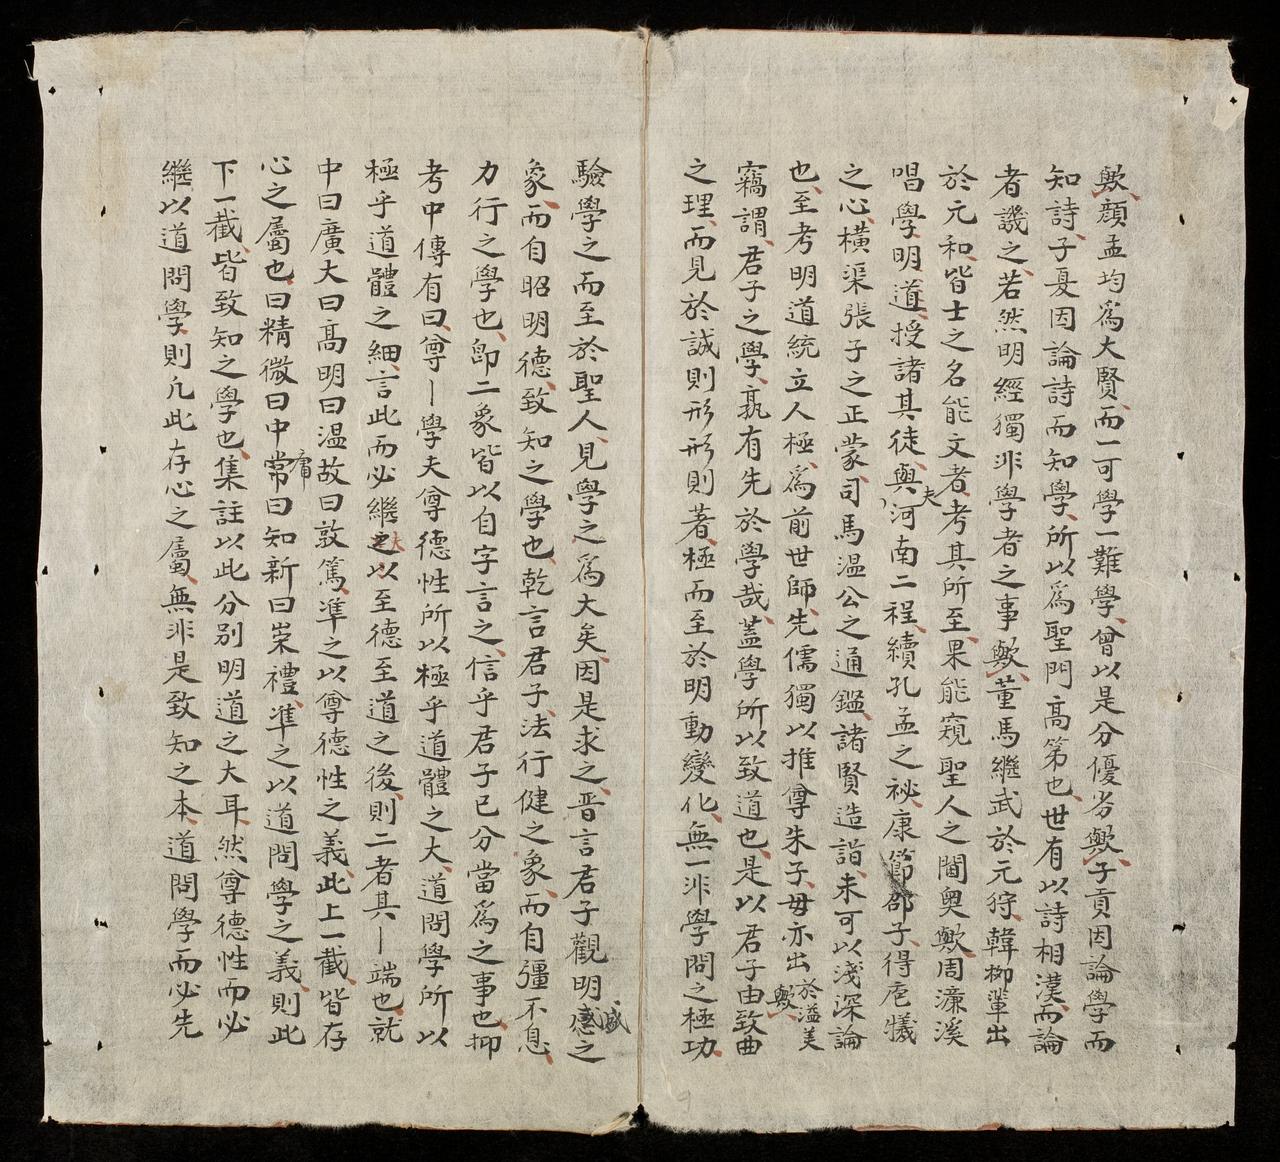 歟顔孟均爲大賢而一可學一難學曾以是分優劣歟子貢因論學而
知詩子夏因論詩而知學所以爲聖門高第也世有以詩相漢而論
者譏之若然明經獨非學者之事歟董馬繼武於元狩韓柳輩出
於元和皆士之名能文者考其所至果能窺聖人之閫奥歟周濂溪
唱學明道授諸其徒與夫河南二程續孔孟之祕康節邵子得庖犧
之心橫渠張子之正蒙司馬温公之通鑑諸賢造詣未可以淺深論
也至考明道統立人極爲前世師先儒獨以推尊朱子毋亦出於溢美歟
竊謂君子之學孰有先於學哉蓋學所以致道也是以君子由致曲
之理而見於誠則形形則著極而至於明動變化無一非學問之極功
驗學之而至於聖人見學之爲大矣因是求之晋言君子觀明盛之
象而自昭明德致知之學也乾言君子法行健之象而自彊不息
力行之學也卽二象皆以自字言之信乎君子已分當爲之事也抑
考中傳有曰尊〡學夫尊德性所以極乎道體之大道問學所以
極乎道體之細言此而必繼之以至德至道之後則二者其〡端也就
中曰廣大曰高明曰温故曰敦篤準之以尊德性之義此上一截皆存
心之屬也曰精微曰中庸曰知新曰崇禮準之以道問學之義則此
下一截皆致知之學也集註以此分別明道之大耳然尊德性而必
繼以道問學則凢此存心之屬無非是致知之本道問學而必先